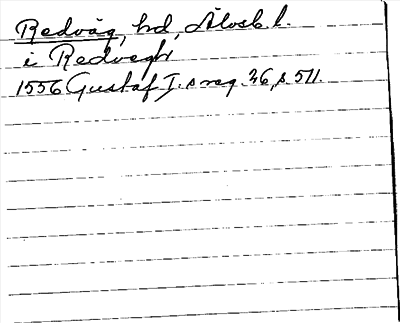 Redväg, hd, Älvsb l.
i Redwegh
1556 Gustaf I:s reg. 26, s. 511.